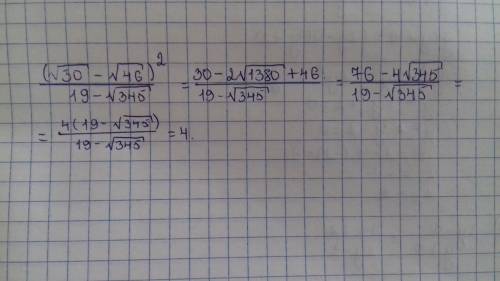 (√30 − √46)² / (19 − √345) = (30 − 2√1380 + 46) / (19 − √345) = (76 − 4√345) / (19 − √345) =
= 4(19 − √345) / (19 − √345) = 4.